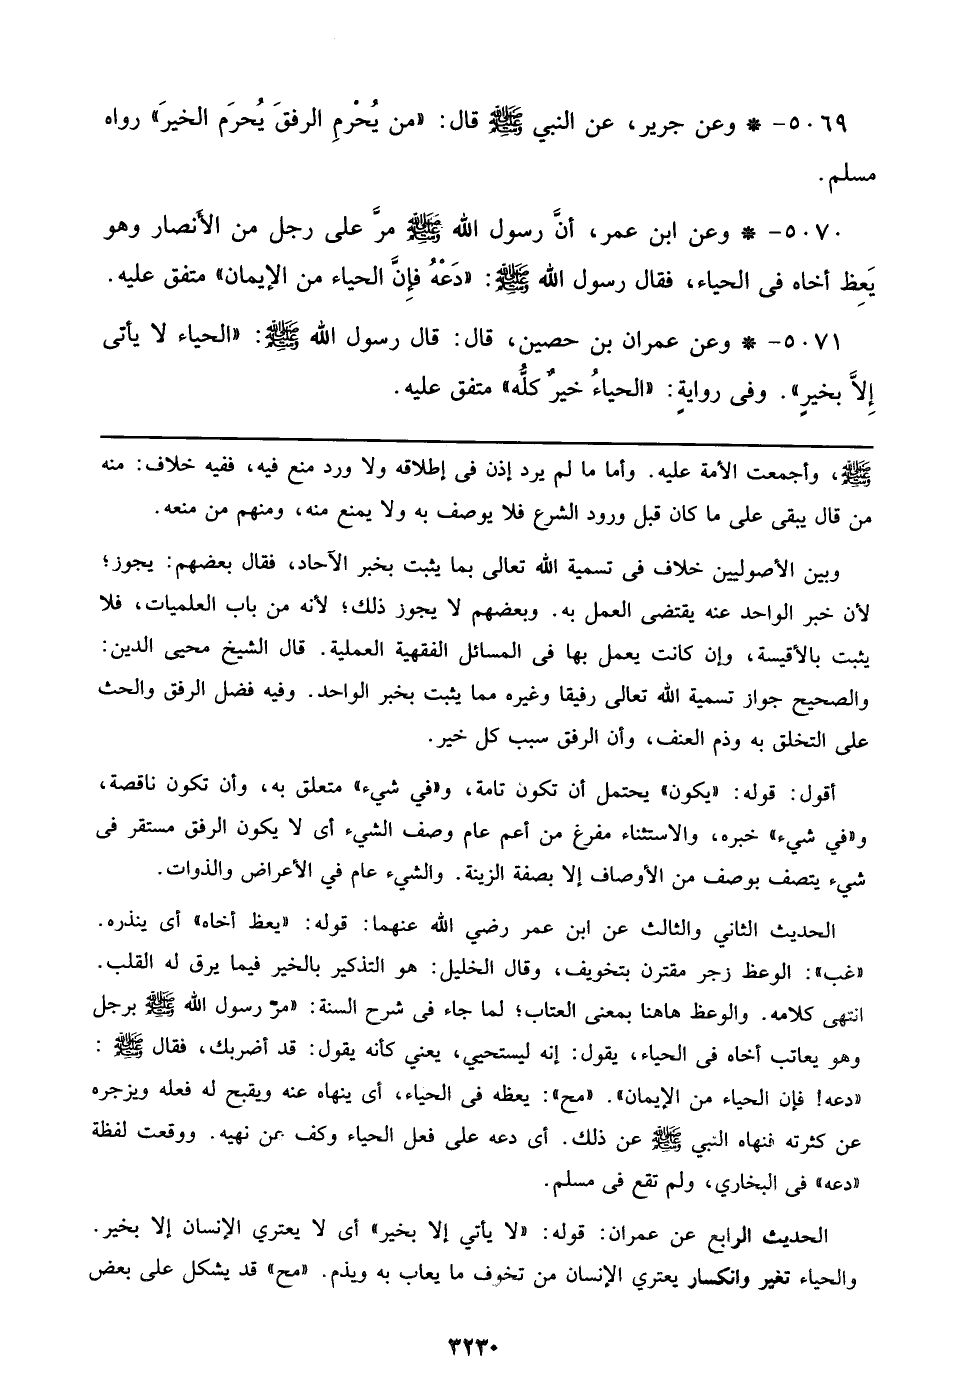 ٥٠٦٩- * وعن جرير، عن النبي ﷺ قال: «من يُحْرمِ الرفقَ يُحرَم الخيرَ» رواه
مسلم.
٥٠٧٠- * وعن ابن عمر، أنَّ رسول الله ﷺ مرَّ على رجل من الأنصار وهو
يَعِظ أخاه فى الحياء، فقال رسول الله ﷺ: «دَعْهُ فإِنَّ الحياء من الإيمان» متفق عليه.
٥٠٧١- * وعن عمران بن حصين، قال: قال رسول الله ﷺ: «الحياء لا يأتى
إِلاَّ بخيرٍ». وفى روايةٍ: «الحياءُ خيرٌ كلُّه» متفق عليه.
ﷺ، وأجمعت الأمة عليه. وأما ما لم يرد إذن فى إطلاقه ولا ورد منع فيه، ففيه خلاف: منه
من قال يبقى على ما كان قبل ورود الشرع فلا يوصف به ولا يمنع منه، ومنهم من منعه.
وبين الأصوليين خلاف فى تسمية الله تعالى بما يثبت بخبر الآحاد، فقال بعضهم: يجوز؛
لأن خبر الواحد عنه يقتضى العمل به. وبعضهم لا يجوز ذلك؛ لأنه من باب العلميات، فلا
يثبت بالأقيسة، وإن كانت يعمل بها فى المسائل الفقهية العملية. قال الشيخ محيى الدين:
والصحيح جواز تسمية الله تعالى رفيقا وغيره مما يثبت بخبر الواحد. وفيه فضل الرفق والحث
على التخلق به وذم العنف، وأن الرفق سبب كل خير.
أقول: قوله: «يكون» يحتمل أن تكون تامة، و«في شيء» متعلق به، وأن تكون ناقصة،
و«في شيء» خبره، والاستثناء مفرغ من أعم عام وصف الشيء أى لا يكون الرفق مستقر فى
شيء يتصف بوصف من الأوصاف إلا بصفة الزينة. والشيء عام في الأعراض والذوات.
الحديث الثاني والثالث عن ابن عمر رضي الله عنهما: قوله: «يعظ أخاه» أى ينذره.
«غب»: الوعظ زجر مقترن بتخويف، وقال الخليل: هو التذكير بالخير فيما يرق له القلب.
انتهى كلامه. والوعظ هاهنا بمعنى العتاب؛ لما جاء فى شرح السنة: «مرّ رسول الله ﷺ برجل
وهو يعاتب أخاه فى الحياء، يقول: إنه ليستحيي، يعني كأنه يقول: قد أضربك، فقال ﷺ:
«دعه! فإن الحياء من الإيمان». «مح»: يعظه فى الحياء، أى ينهاه عنه ويقبح له فعله ويزجره
عن كثرته فنهاه النبي ﷺ عن ذلك. أى دعه على فعل الحياء وكف عن نهيه. ووقعت لفظة
«دعه» فى البخاري، ولم تقع فى مسلم.
الحديث الرابع عن عمران: قوله: «لا يأتي إلا بخير» أى لا يعتري الإنسان إلا بخير.
والحياء تغير وانكسار يعتري الإنسان من تخوف ما يعاب به ويذم. «مح» قد يشكل على بعض
٣٢٣٠